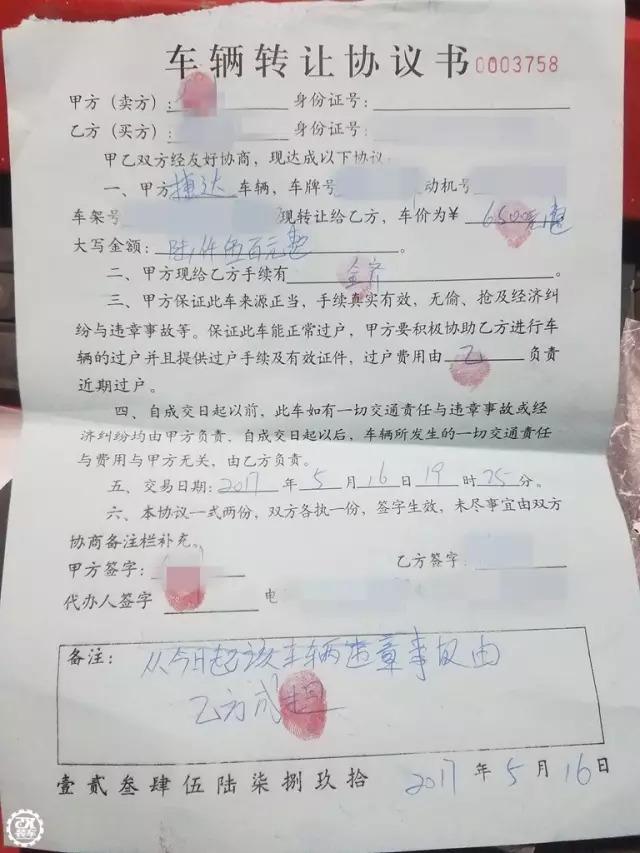 车辆转让协议书 0003758
甲方（卖方）：　　身份证号：
乙方（买方）：　　身份证号：
甲乙双方经友好协商，现达成以下协议
一、甲方捷达车辆，车牌号　　动机号
车架号　　现转让给乙方，车价为￥6500元整
大写金额：陆仟伍百元整。
二、甲方现给乙方手续有　全齐　。
三、甲方保证此车来源正当，手续真实有效，无偷、抢及经济纠
纷与违章事故等。保证此车能正常过户，甲方要积极协助乙方进行车
辆的过户并且提供过户手续及有效证件，过户费用由乙负责
近期过户。
四、自成交日起以前，此车如有一切交通责任与违章事故或经
济纠纷均由甲方负责，自成交日起以后，车辆所发生的一切交通责任
与费用与甲方无关，由乙方负责。
五、交易日期：2017年5月16日19时25分。
六、本协议一式两份，双方各执一份，签字生效，未尽事宜由双方
协商备注栏补充。
甲方签字：　　乙方签字：
代办人签字　　电
备注：从今日起该车辆违章事故由
乙方成担
壹贰叁肆伍陆柒捌玖拾　2017年5月16日
改装车